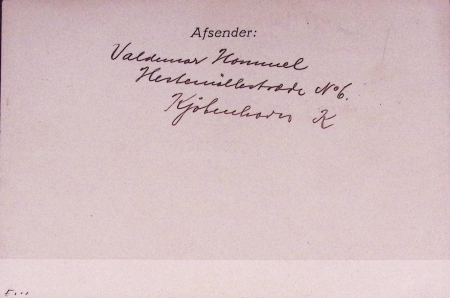 Afsender:
Valdemar Hommel
Hestemøllestræde No 6.
Kjøbenhavn K